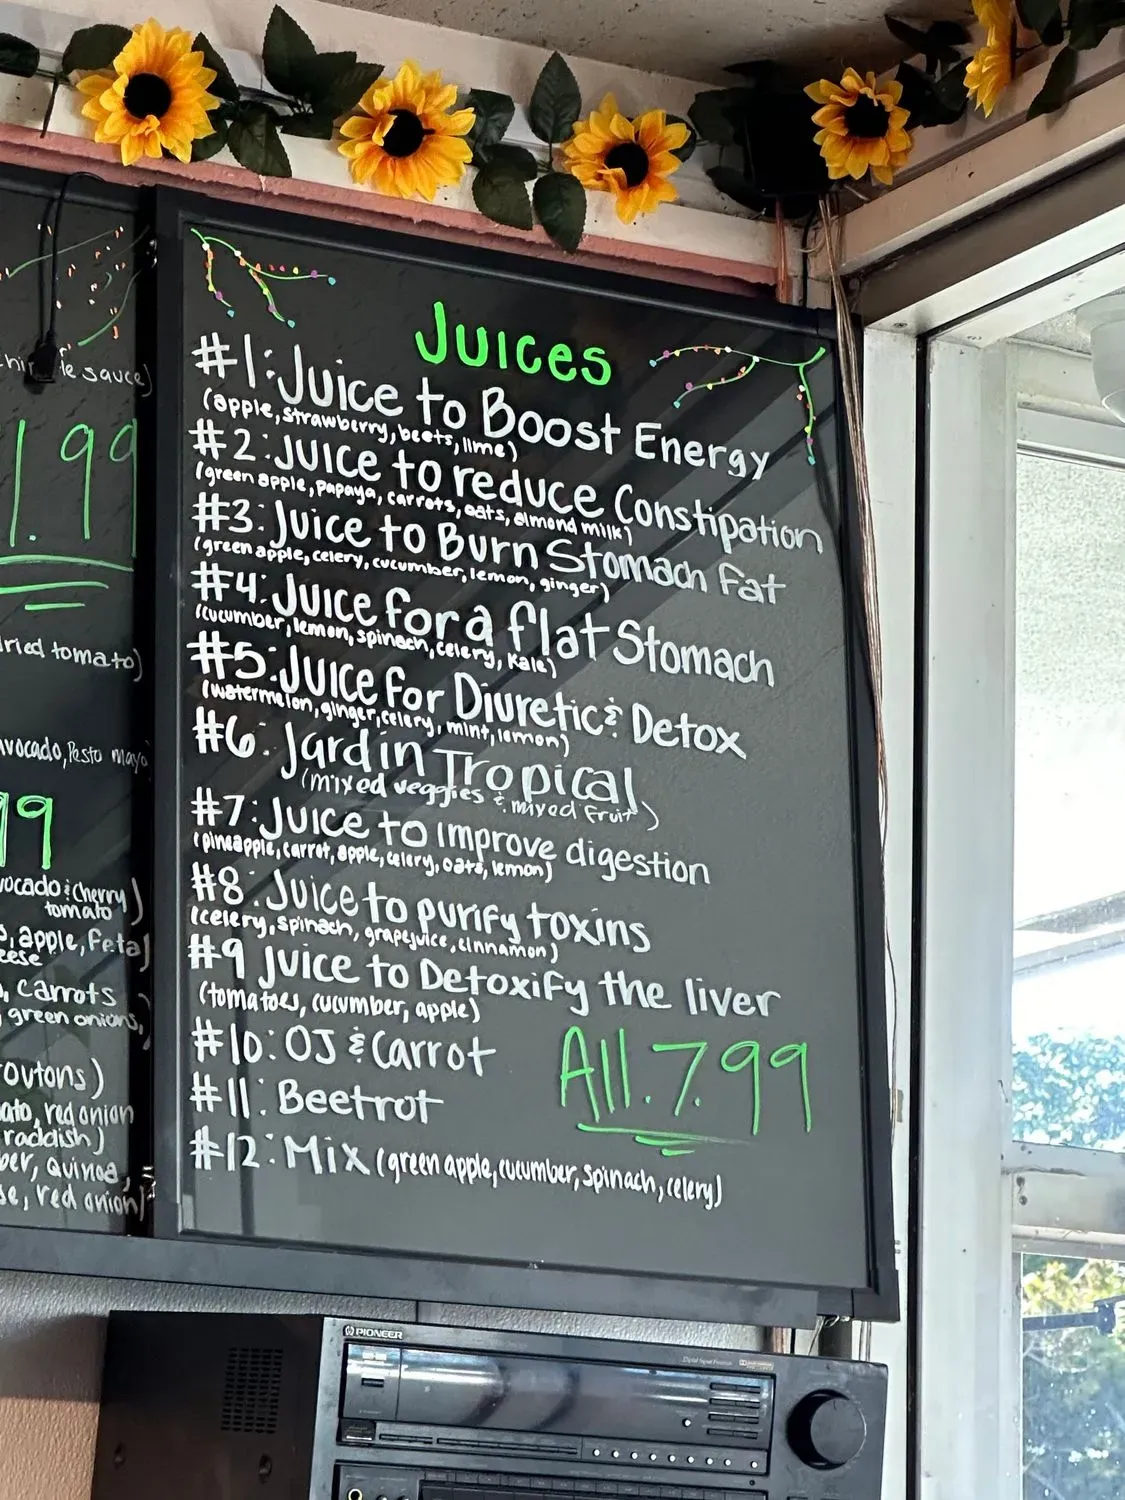 le sauce)
1.99
ried tomato)
avocado, Pesto mayo
99
vocado & cherry
tomato)
, apple, feta)
eese
, carrots
, green onions,)
outons)
ato, red onion
raddish)
ber, quinoa,
se, red onion)
Juices
#1: Juice to Boost Energy
(apple, strawberry, beets, lime)
#2: Juice to reduce Constipation
(green apple, papaya, carrots, oats, almond milk)
#3: Juice to Burn Stomach fat
(green apple, celery, cucumber, lemon, ginger)
#4: Juice for a flat Stomach
(cucumber, lemon, spinach, celery, kale)
#5: Juice for Diuretic & Detox
(watermelon, ginger, celery, mint, lemon)
#6: Jardin Tropical
(mixed veggies & mixed fruit)
#7: Juice to improve digestion
(pineapple, carrot, apple, celery, oats, lemon)
#8: Juice to purify toxins
(celery, spinach, grapejuice, cinnamon)
#9 Juice to Detoxify the liver
(tomatoes, cucumber, apple)
#10: OJ & Carrot
#11: Beetrot
All. 7.99
#12: Mix (green apple, cucumber, spinach, celery)
PIONEER